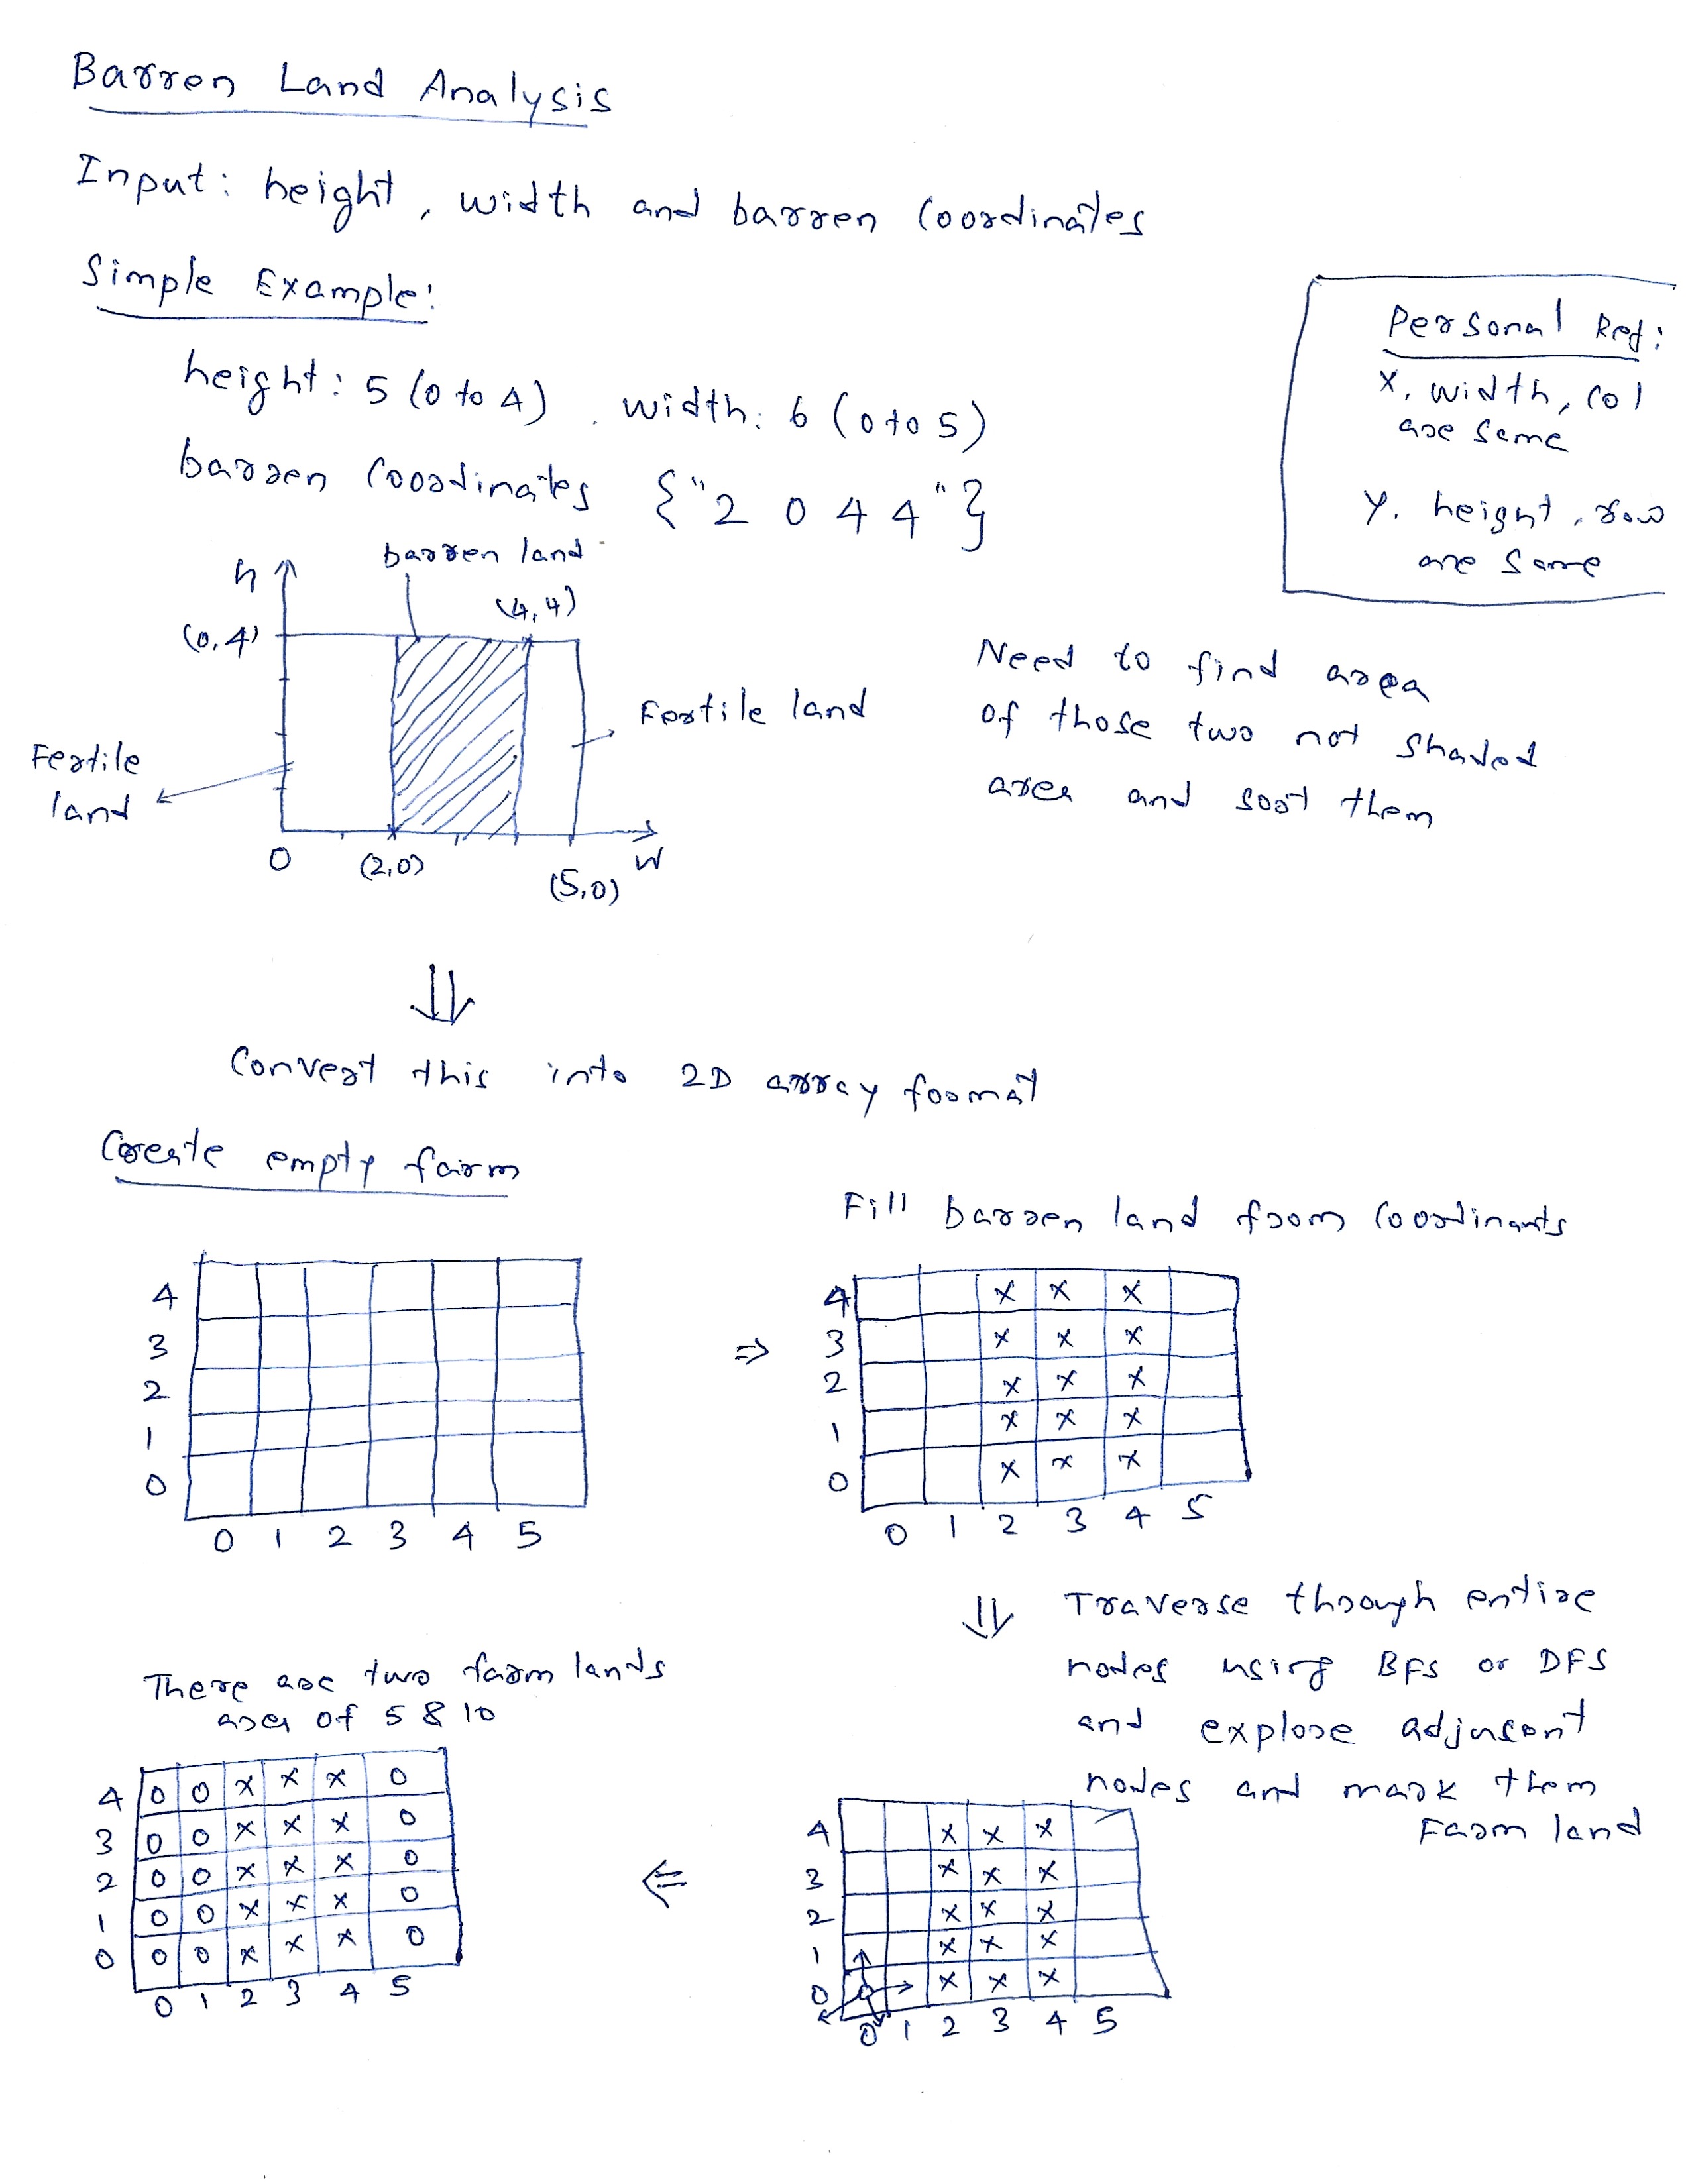 Barren Land Analysis
Input: height, width and barren Coordinates
Simple Example:
height: 5 (0 to 4), width: 6 (0 to 5)
barren Coordinates {"2 0 4 4"}
Personal Ref:
X, width, col
are same
Y, height, row
are same
barren land
h
(4,4)
(0,4)
Fertile land
Fertile
land
0
(2,0)
(5,0)
W
Need to find area
of those two not shaded
area and sort them
Convert this into 2D array format
Create empty farm
4
3
2
1
0
0 1 2 3 4 5
Fill barren land from Coordinants
4 x x x
3 x x x
2 x x x
1 x x x
0 x x x
0 1 2 3 4 5
Traverse through entire
nodes using BFS or DFS
and explore adjucent
nodes and mark them
Farm land
4 x x x
3 x x x
2 x x x
1 x x x
0 x x x
0 1 2 3 4 5
There are two farm lands
area of 5 & 10
4 0 0 x x x 0
3 0 0 x x x 0
2 0 0 x x x 0
1 0 0 x x x 0
0 0 0 x x x 0
0 1 2 3 4 5